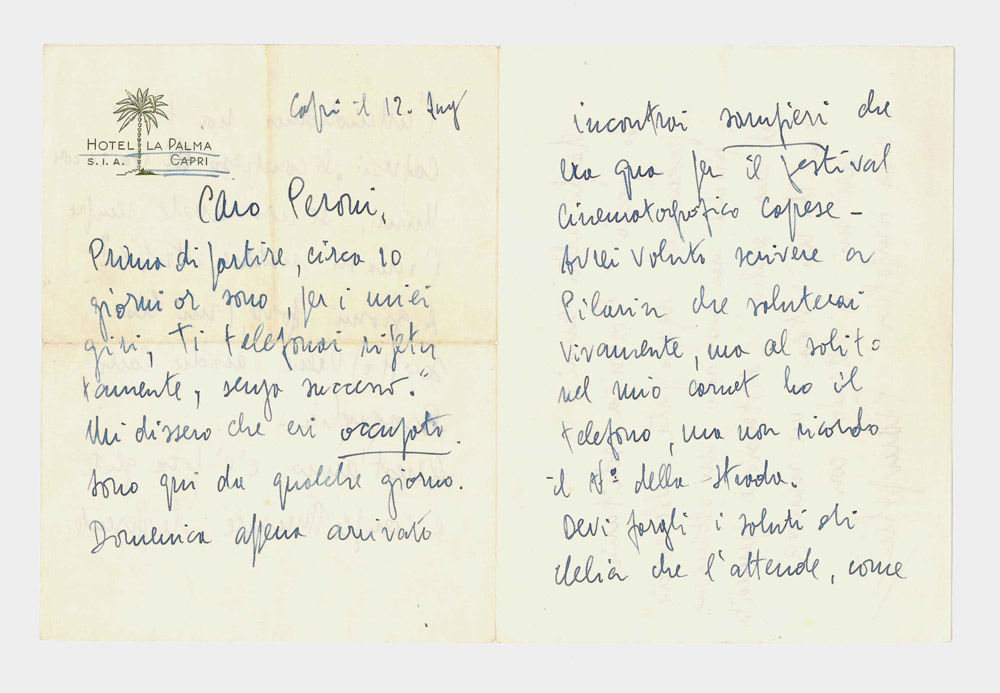 HOTEL LA PALMA
S.I.A. CAPRI
Capri il 12.
Caro Peroni,
Prima di partire, circa 10
giorni or sono, per i miei
giri, Ti telefonai ripetu
tamente, senza successo.
Mi dissero che eri occupato.
Sono qui da qualche giorno.
Domenica appena arrivato
incontrai Sampieri che
era qua per il festival
cinematografico caprese –
Avrei voluto scrivere a
che saluterai
vivamente, ma al solito
nel mio carnet ho il
telefono, ma non ricordo
il Nº della strada.
Devi fargli i saluti di
Clelia che l'attende, come